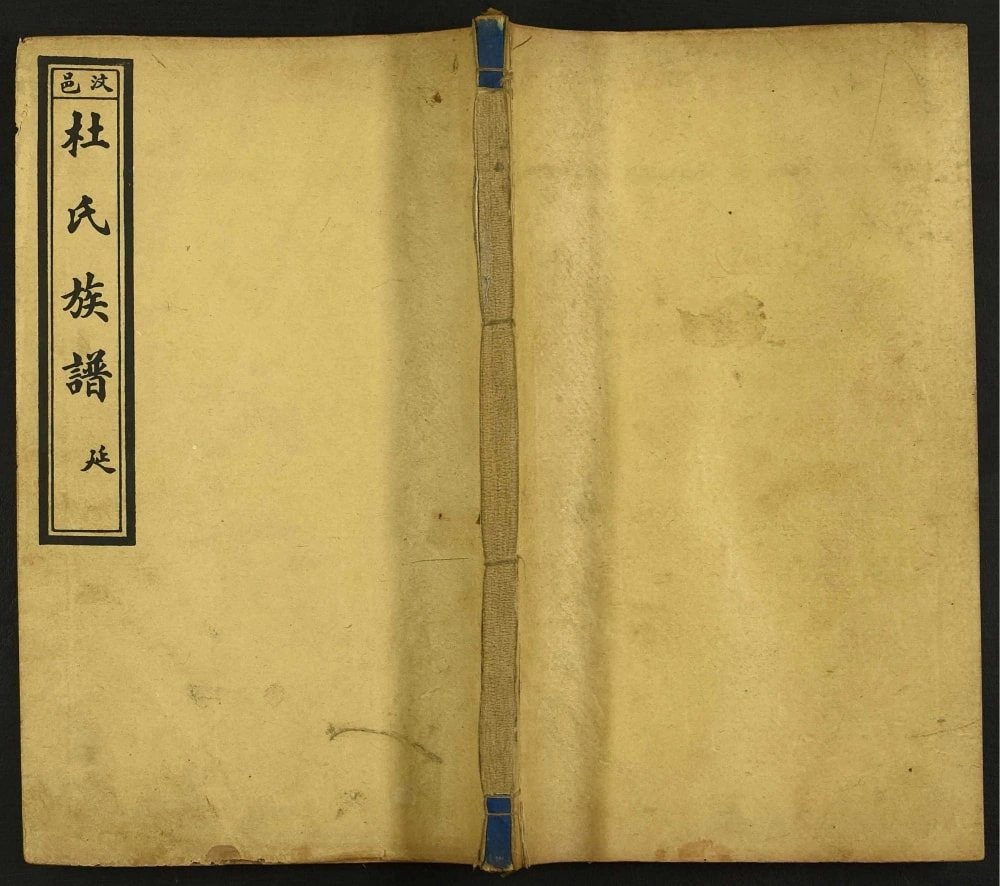 汶邑
杜氏族譜
延